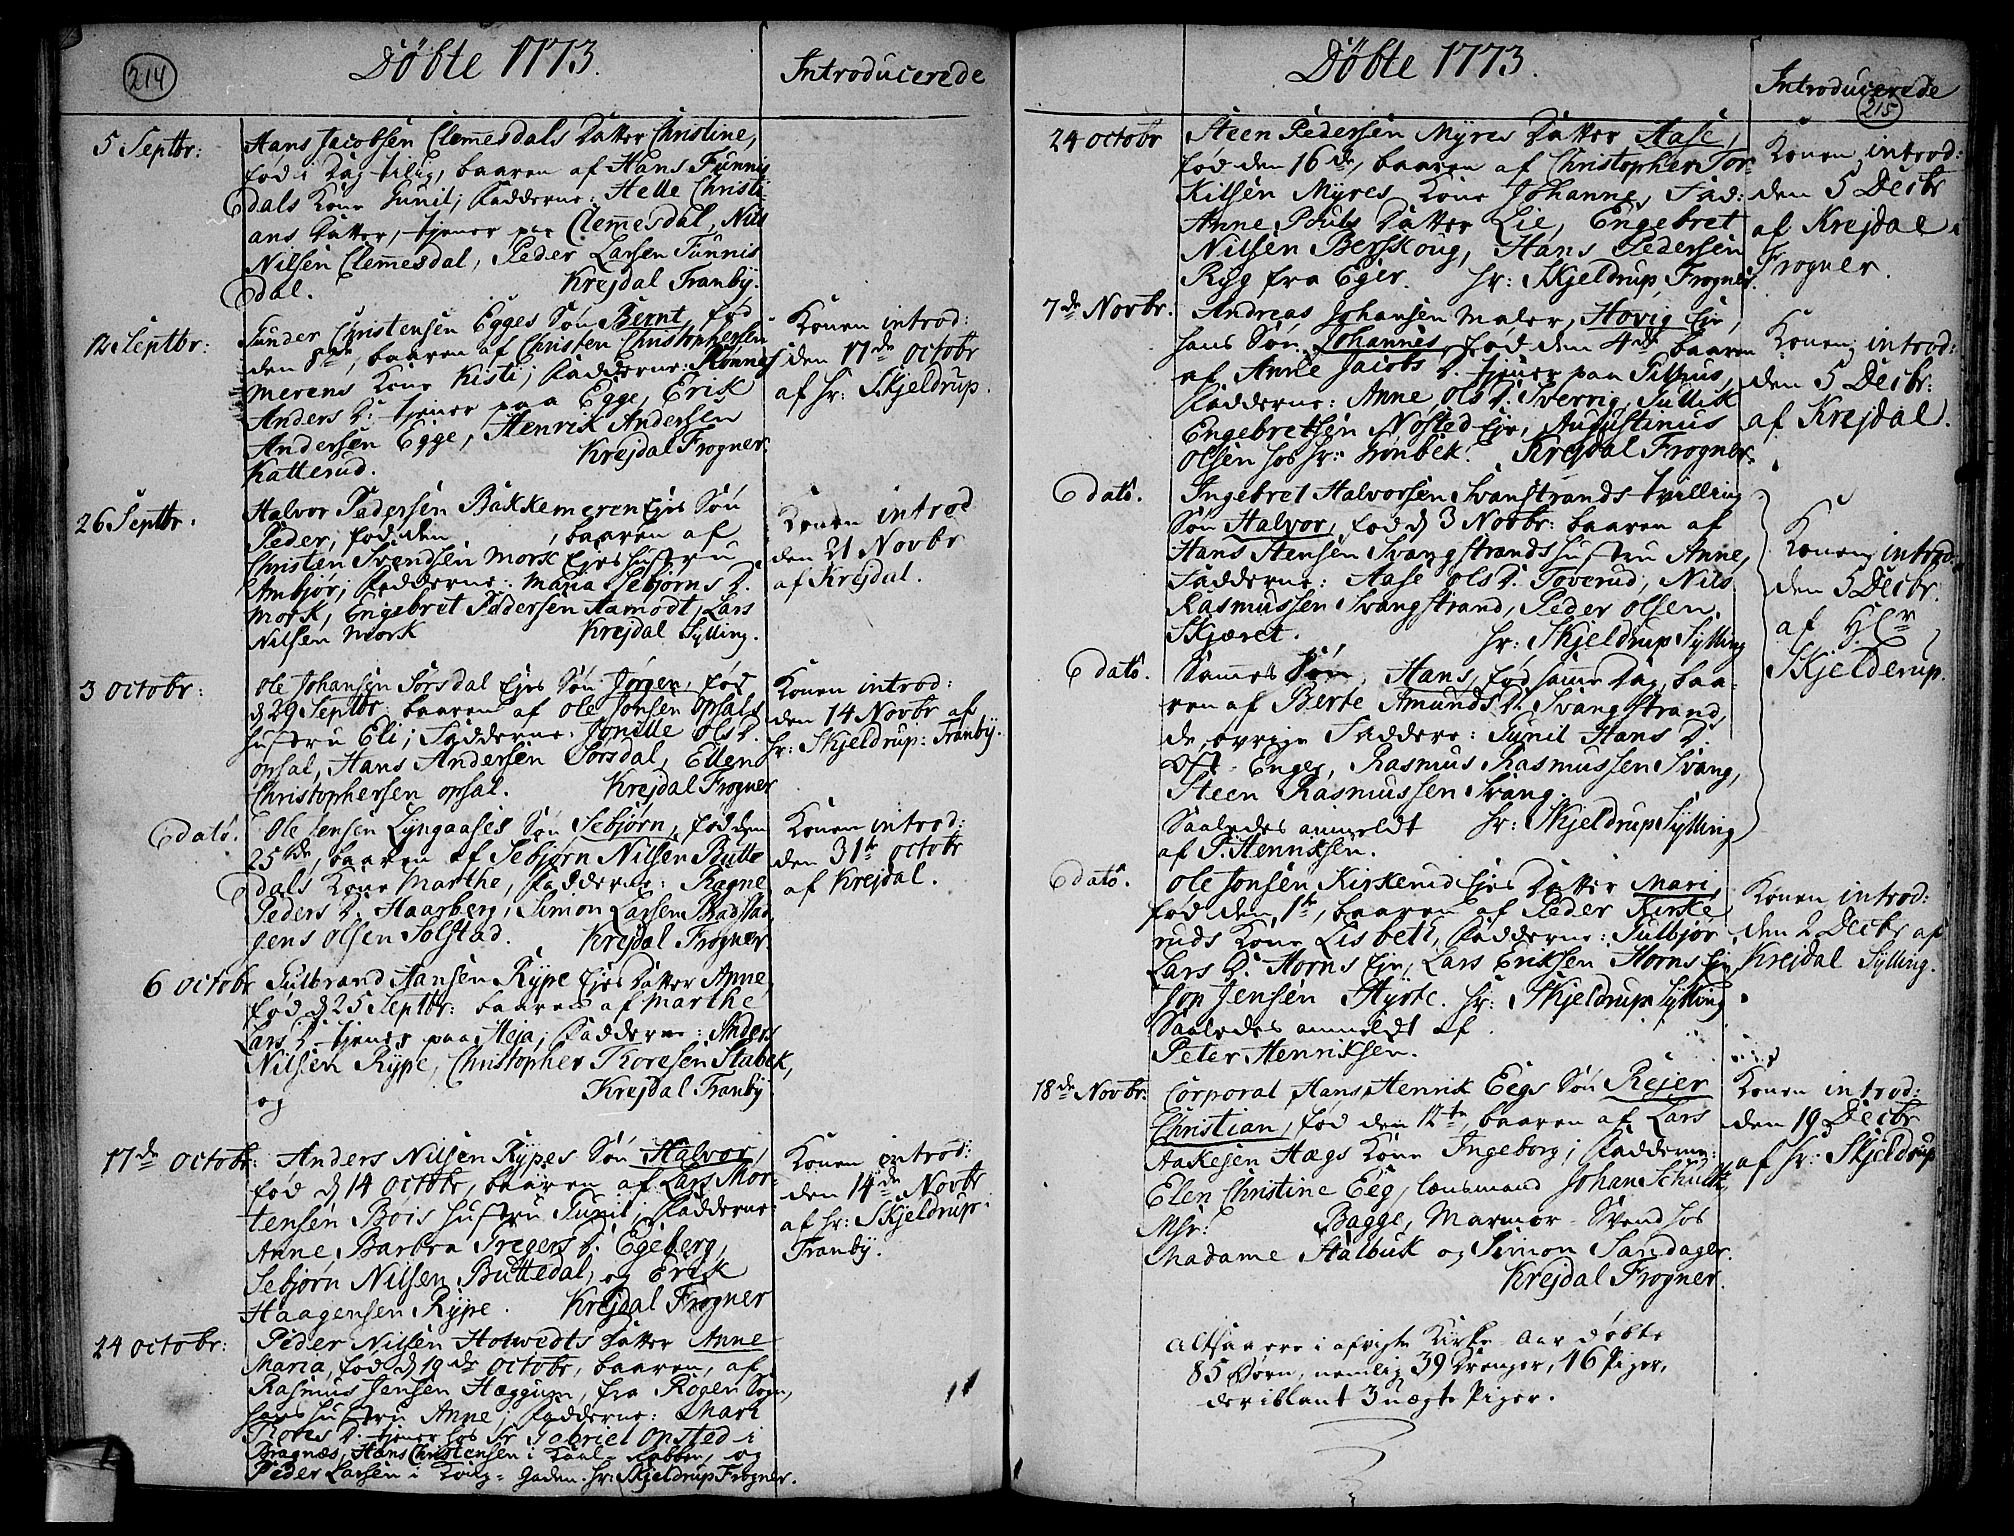 214
Döbte 1773.
Introducerede
5 Septbr:
Hans Jacobsen Clemmesdals Datter Christine,
fød i Dag tilig, baaren af Hans Funnis
Edals Kone Gunil; Fadderne: Helle Christi
ans Datter, tjener paa Clemmesdal, Nils
Nilsen Clemmesdal, Peder Larsen Funnis
Edal. Krejdal Tranby.
12 Septbr:
Gunder Christensen Egges Søn Bernt, fød
den 8de, baaren af Christen Christophersen
merens Kone Kisti; Fadderne: Rønnej
Anders D: tjener paa Egge, Erik
Andersen Egge, Henrik Andersen
Katterud. Krejdal Frogner.
Konen introd:
den 17de Octobr
af Hr: Skjeldrup.
26 Septbr:
Halvor Pedersen Bakkemeren Ejes Søn
Peder, fød den , baaren af
Christen Svendsen Mork Ejes Hustru
Ambjør; Fadderne: Maria Sebjørns D.
Mork, Engebret Pedersen Aamodt, Lars
Nilsen Mork Krejdal Sylling.
Konen introd
den 21 Novbr
af Krejdal.
3 Octobr:
Ole Johansen Sørsdal Ejes Søn Jørgen, fød
d 29 Septbr: baaren af Ole Jonsen Opsals
Hustru Eli; Fadderne: Jonille Ols D.
Opsal, Hans Andersen Sørsdal, Ellen
Christophersen Opsal. Krejdal Frogner
Konen introd:
den 14 Novbr af
Hr: Skjeldrup: Tranby.
Edato.
Ole Jensen Lyngaases Søn Sebjørn, fød den
25de, baaren af Sebjørn Nilsen Butte
dals Kone Marthe, Fadderne: Ragne
Peders D. Haarberg, Simon Larsen Bradstad
Jens Olsen Solstad. Krejdal Frogner.
Konen introd:
den 31te Octobr
af Krejdal.
6 Octobr
Gulbrand Hansen Rype Ejes Datter Anne
fød d 25 Septbr: baaren af Marthe
Lars D. tjener paa Heja; Fadderne: Anders
Nilsen Rype, Christopher Thoresen Stabek,
og Krejdal Tranby.
17de Octobr:
Anders Nilsen Rypes Søn Halvor,
fød d 14 Octobr, baaren af Lars Mor-
tensen Bois Hustru Gunil, Fadderne:
Anne Barbra Gregers D. Egeberg,
Sebjørn Nilsen Buttedal, og Erik
Haagensen Rype. Krejdal Frogner
Konen introd:
den 14de Novbr
af Hr: Skjeldrup:
Tranby.
24 Octobr:
Peder Nilsen Hotwedts Datter Anne
Maria, fød d 19de Octobr, baaren, af
Rasmus Jensen Hæggum, fra Røgen Sogn,
hans Hustru Anne; Fadderne: Mari
Thores D. tjener hos Sr Gabriel Opsted i
Bragnæs, Hans Christensen i Kaal-Rabben, og
Peder Larsen i Qvilg-Gaden. Hr: Skjeldrup Frogner.
Döbte 1773.
Introducerede
215
24 Octobr
Steen Pedersen Myres Datter Aase,
fød den 16de, baaren af Christopher Tor-
Kilsen Myres Kone Johanne, Fad:
Anne Pouls Datter Lie, Engebret
Nilsen Berskoug, Hans Pedersen
Ryg fra Eger. Hr: Skjeldrup, Frogner.
Konen introd:
den 5 Decbr
af Krejdal i
Frogner.
7de Novbr.
Andreas Johansen Maler, Hovig Eje,
hans Søn Johannes, fød den 4de baaren
af Anne Jacobs D. tjener paa Gilhus,
Fadderne: Anne Ols D. Sverrig, Gullik
Engebretsen Nøsted Eje, Augustinus
Olsen hos Hr: Grønbek. Krejdal Frogner.
Konen introd:
den 5 Decbr:
af Krejdal.
Edato.
Ingebret Halvorsen Svangstrands tvilling
Søn Halvor, fød d 3 Novbr: baaren af
Hans Stensen Svangstrands Hustru Anne,
Fadderne: Aase Ols D. Toverud, Nils
Rasmussen Svangstrand, Peder Olsen
Skjæret. Hr: Skjeldrup Sylling
Konen introd:
den 5 Decbr.
af Hr
Skjelderup.
Edato.
Sammes Søn, Hans, fød samme Dag, baa-
ren af Berte Amunds D. Svangstrand,
de øvrige Faddere: Gunil Hans D.
Enger, Rasmus Rasmussen Svang,
Steen Rasmussen Svang.
Saaledes anmeldt Hr: Skjeldrup Sylling
af P. Henriksen.
Edato.
Ole Jonsen Kirkerud Ejes Datter Mari,
fød den 1te, baaren af Peder Kirke
ruds Kone Lisbeth, Fadderne: Gulbjør
Lars D. Horns Eje, Lars Eriksen Horns Eje
Jon Jensen Hyrte. Hr: Skjeldrup Sylling
Saaledes anmeldt af
Peter Henriksen.
Konen introd:
den 2 Decbr af
Krejdal Sylling.
18de Novbr:
Corporal Hans Henrik Eegs Søn Rejer
Christian, fød den 12te, baaren af Lars
Aakesen Hægs Kone Ingeborg; Fadderne:
Elen Christine Eeg, Lænsmand Johan Schultz,
Msr: Bagge, Marmor-Svend hos
Madame Stalbuk og Simon Sandager.
Krejdal Frogner.
Konen introd:
den 19 Decbr
af Hr: Skjeldrup
Altsaa ere i afvigte Kirke-Aar døbte
85 Børn, nemlig 39 Drenger, 46 Piger,
deriblant 3 uægte Piger.